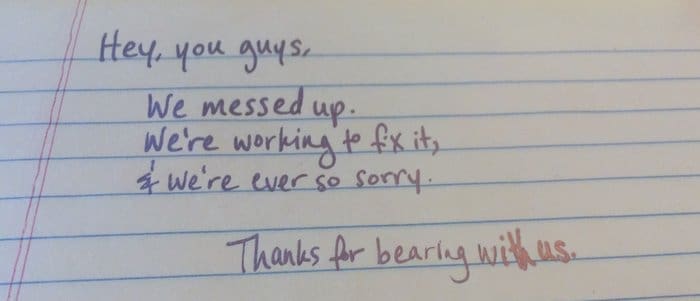 Hey, you guys,
We messed up.
We're working to fix it,
& we're ever so sorry.
Thanks for bearing with us.